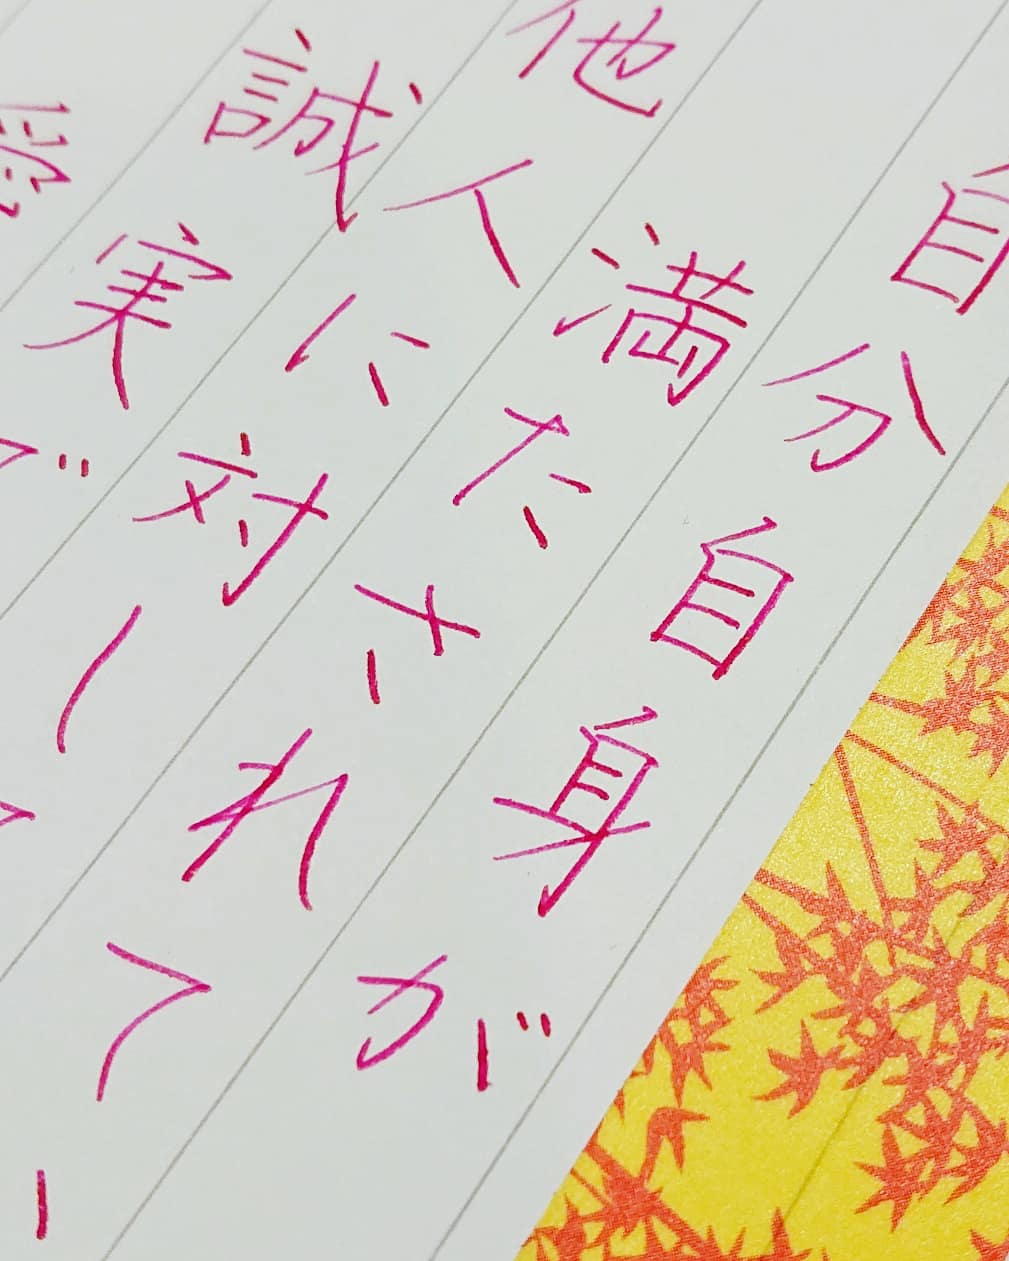 自分自身が
満たされてい
他人に対して
誠実で
愛